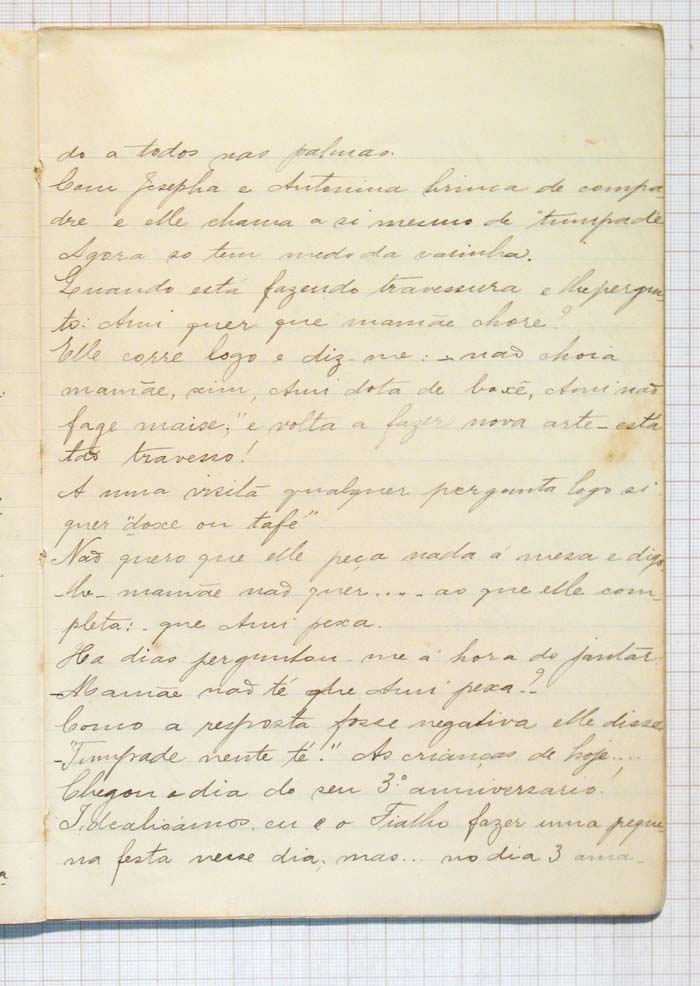 do a todos nas palmas.
Com Josepha e Antonina brinca de compa-
dre e elle chama a si mesmo de "tumpade
Agora só tem medo da varinha.
Quando está fazendo travessura e lhe pergun-
to: Ami quer que mamãe chore?
Elle corre logo e diz-me: - não choia
mamãe, xim, Ami dota de boxê, Ami não
fage maise;" e volta a fazer nova arte - está
tão travesso!
A uma visita qualquer pergunta logo si
quer "doxe ou tafé"
Não quero que elle peça nada á mesa e digo-
lhe - mamãe não quer.... - ao que elle com-
pleta: - que Ami pexa.
Ha dias perguntou-me á hora do jantar:
- Mamãe não té que Ami pexa?-
Como a resposta fosse negativa elle disse:
-"Tumpade nente té!" As crianças de hoje....
Chegou o dia do seu 3º anniversario!
Idealisámos, eu e o Fialho fazer uma peque-
na festa nesse dia, mas... no dia 3 ama-